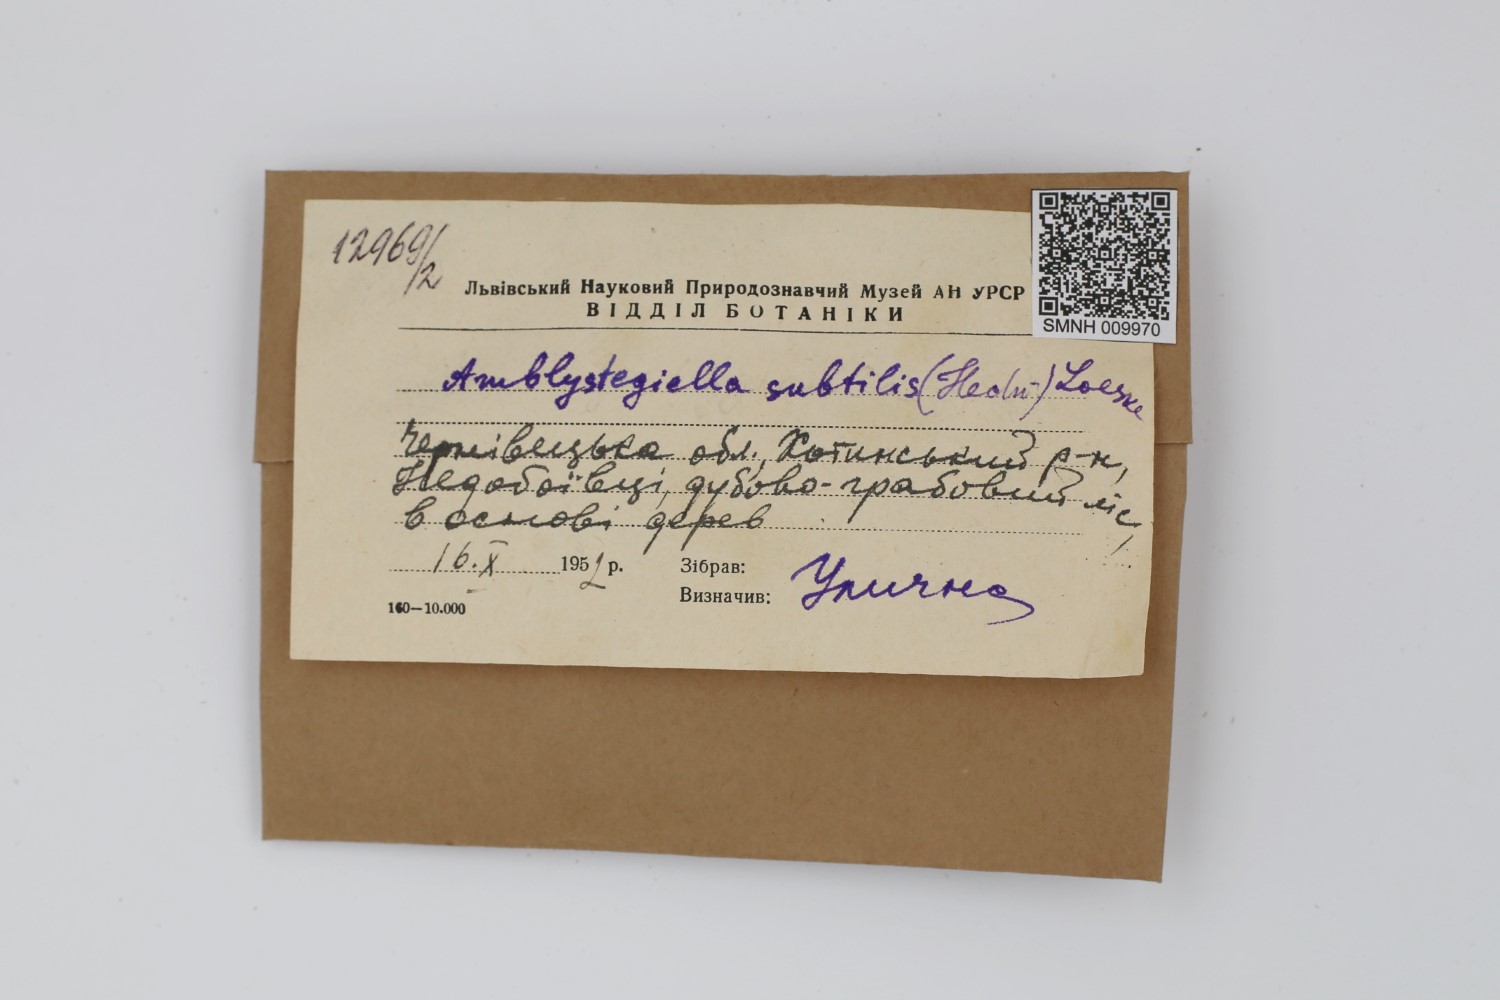 12969/2
Львівський Науковий Природознавчий Музей АН УРСР
ВІДДІЛ БОТАНІКИ
SMNH 009970
Amblystegiella subtilis (Hedw.) Loeske
Чернівецька обл., Хотинський р-н,
Недобоївці, дубово-грабовий ліс,
в основі дерев
16.X 1952 р.
Зібрав:
Визначив: Улична
160—10.000